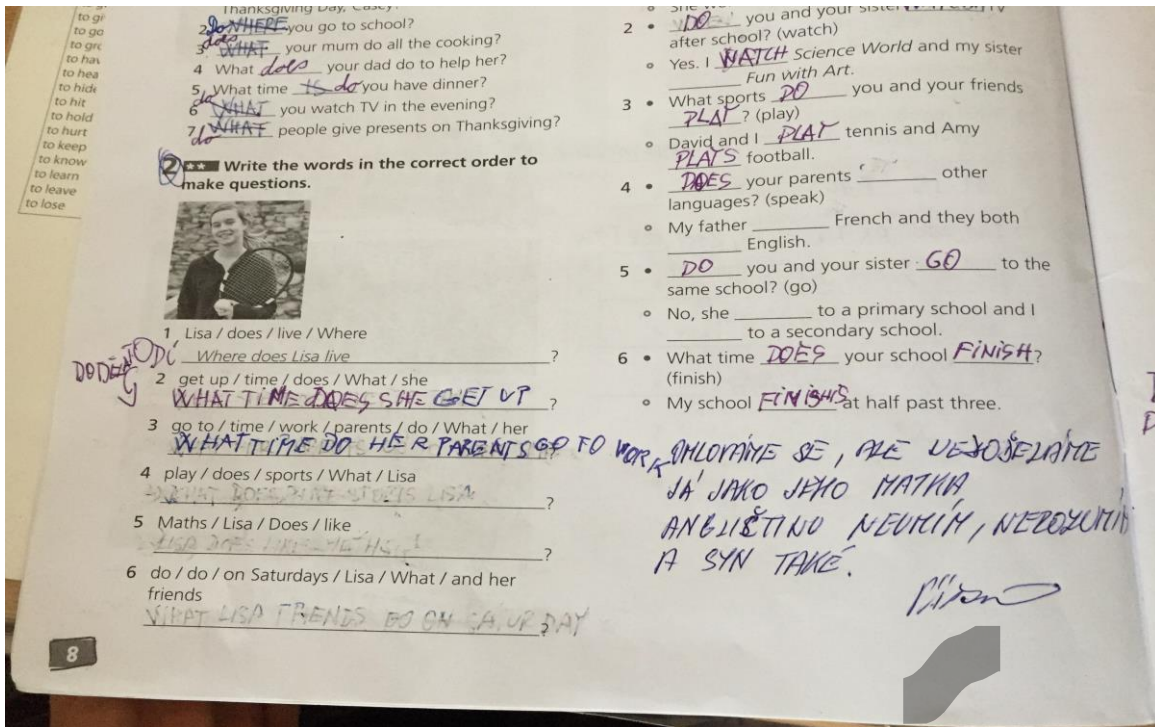 to go
to gro
to hav
to hea
to hide
to hit
to hold
to hurt
to keep
to know
to learn
to leave
to lose
Thanksgiving Day, Casey?
2 Do WHERE you go to school?
3 does WHAT your mum do all the cooking?
4 What does your dad do to help her?
5 What time IS do you have dinner?
6 do WHAT you watch TV in the evening?
7 do WHAT people give presents on Thanksgiving?
2 Write the words in the correct order to
make questions.
1 Lisa / does / live / Where
Where does Lisa live ?
2 get up / time / does / What / she
WHAT TIME DOES SHE GET UP ?
3 go to / time / work / parents / do / What / her
WHAT TIME DO HER PARENTS GO TO WORK
4 play / does / sports / What / Lisa
?
5 Maths / Lisa / Does / like
?
6 do / do / on Saturdays / Lisa / What / and her
friends
WHAT LISA FRIENDS GO ON SATURDAY
?
8
2 • DO you and your sister
after school? (watch)
Yes. I WATCH Science World and my sister
Fun with Art.
3 • What sports DO you and your friends
PLAY ? (play)
David and I PLAY tennis and Amy
PLAYS football.
4 • DOES your parents other
languages? (speak)
My father French and they both
English.
5 • DO you and your sister GO to the
same school? (go)
No, she to a primary school and I
to a secondary school.
6 • What time DOES your school FINISH?
(finish)
My school FINISHS at half past three.
OMLOUVÁME SE, ALE
JÁ JAKO JEHO MATKA
ANGLIČTINU NEUMÍM, NEROZUMÍM
A SYN TAKÉ.